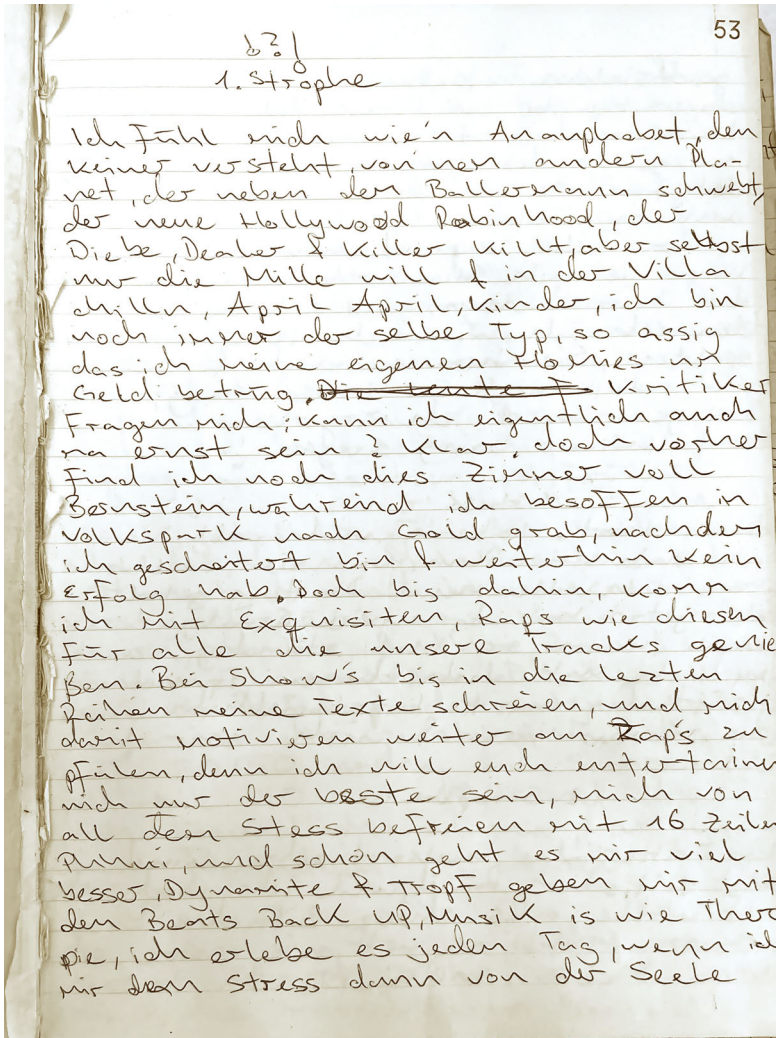 53
b?!
1. Strophe
Ich Fühl mich wie'n Ananphabet, den
keiner versteht, von'nem andern Pla-
net, der neben dem Ballermann schwebt,
der neue Hollywood Robinhood, der
Diebe, Dealer & Killer Killt, aber selbst
nur die Mille will & in der Villa
chilln, April April, Kinder, ich bin
noch immer der selbe Typ, so assig
das ich meine eigenen Homies um
Geld betrüg. Die Leute F Kritiker
Fragen mich: kann ich eigentlich auch
ma ernst sein? Klar, doch vorher
Find ich noch dies Zimmer voll
Bernstein, während ich besoffen in
Volkspark nach Gold grab, nachdem
ich gescheitert bin & weiterhin kein
Erfolg hab. Doch bis dahin, komm
ich mit Exquisiten, Raps wie diesen
Für alle die unsere Tracks genie
ßen. Bei Show's bis in die lezten
Reihen meine Texte schreien, und mich
damit motivieren weiter an Rap's zu
pfeilen, denn ich will euch entertainen
nich nur der beste sein, mich von
all dem Stess befreien mit 16 Zeilen
und schon geht es mir viel
besser, Dynamite & Tropf geben mir mit
den Beats Back UP, Musik is wie Thera
pie, ich erlebe es jeden Tag, wenn ich
mir dem Stress dann von der Seele